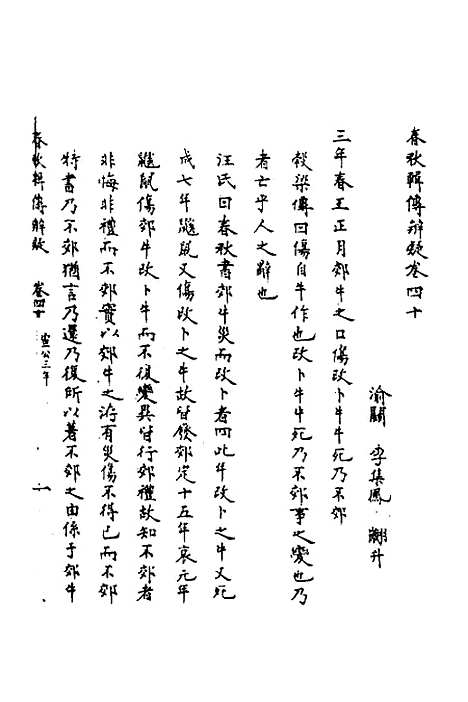 春秋輯傳辨疑卷四十
渝關 李集鳳 翽升
三年春王正月郊牛之口傷改卜牛牛死乃不郊
穀梁傳曰傷自牛作也改卜牛牛死乃不郊事之變也乃
者亡乎人之辭也
汪氏曰春秋書郊牛災而改卜者四此年改卜之牛又死
成七年鼷鼠又傷改卜之牛故皆廢郊定十五年哀元年
鼷鼠傷郊牛改卜牛而不復變異皆行郊禮故知不郊者
非悔非禮而不郊實以郊牛之洊有災傷不得已而不郊
特書乃不郊猶言乃還乃復所以著不郊之由係于郊牛
春秋輯傳辨疑 卷四十 宣公三年 一